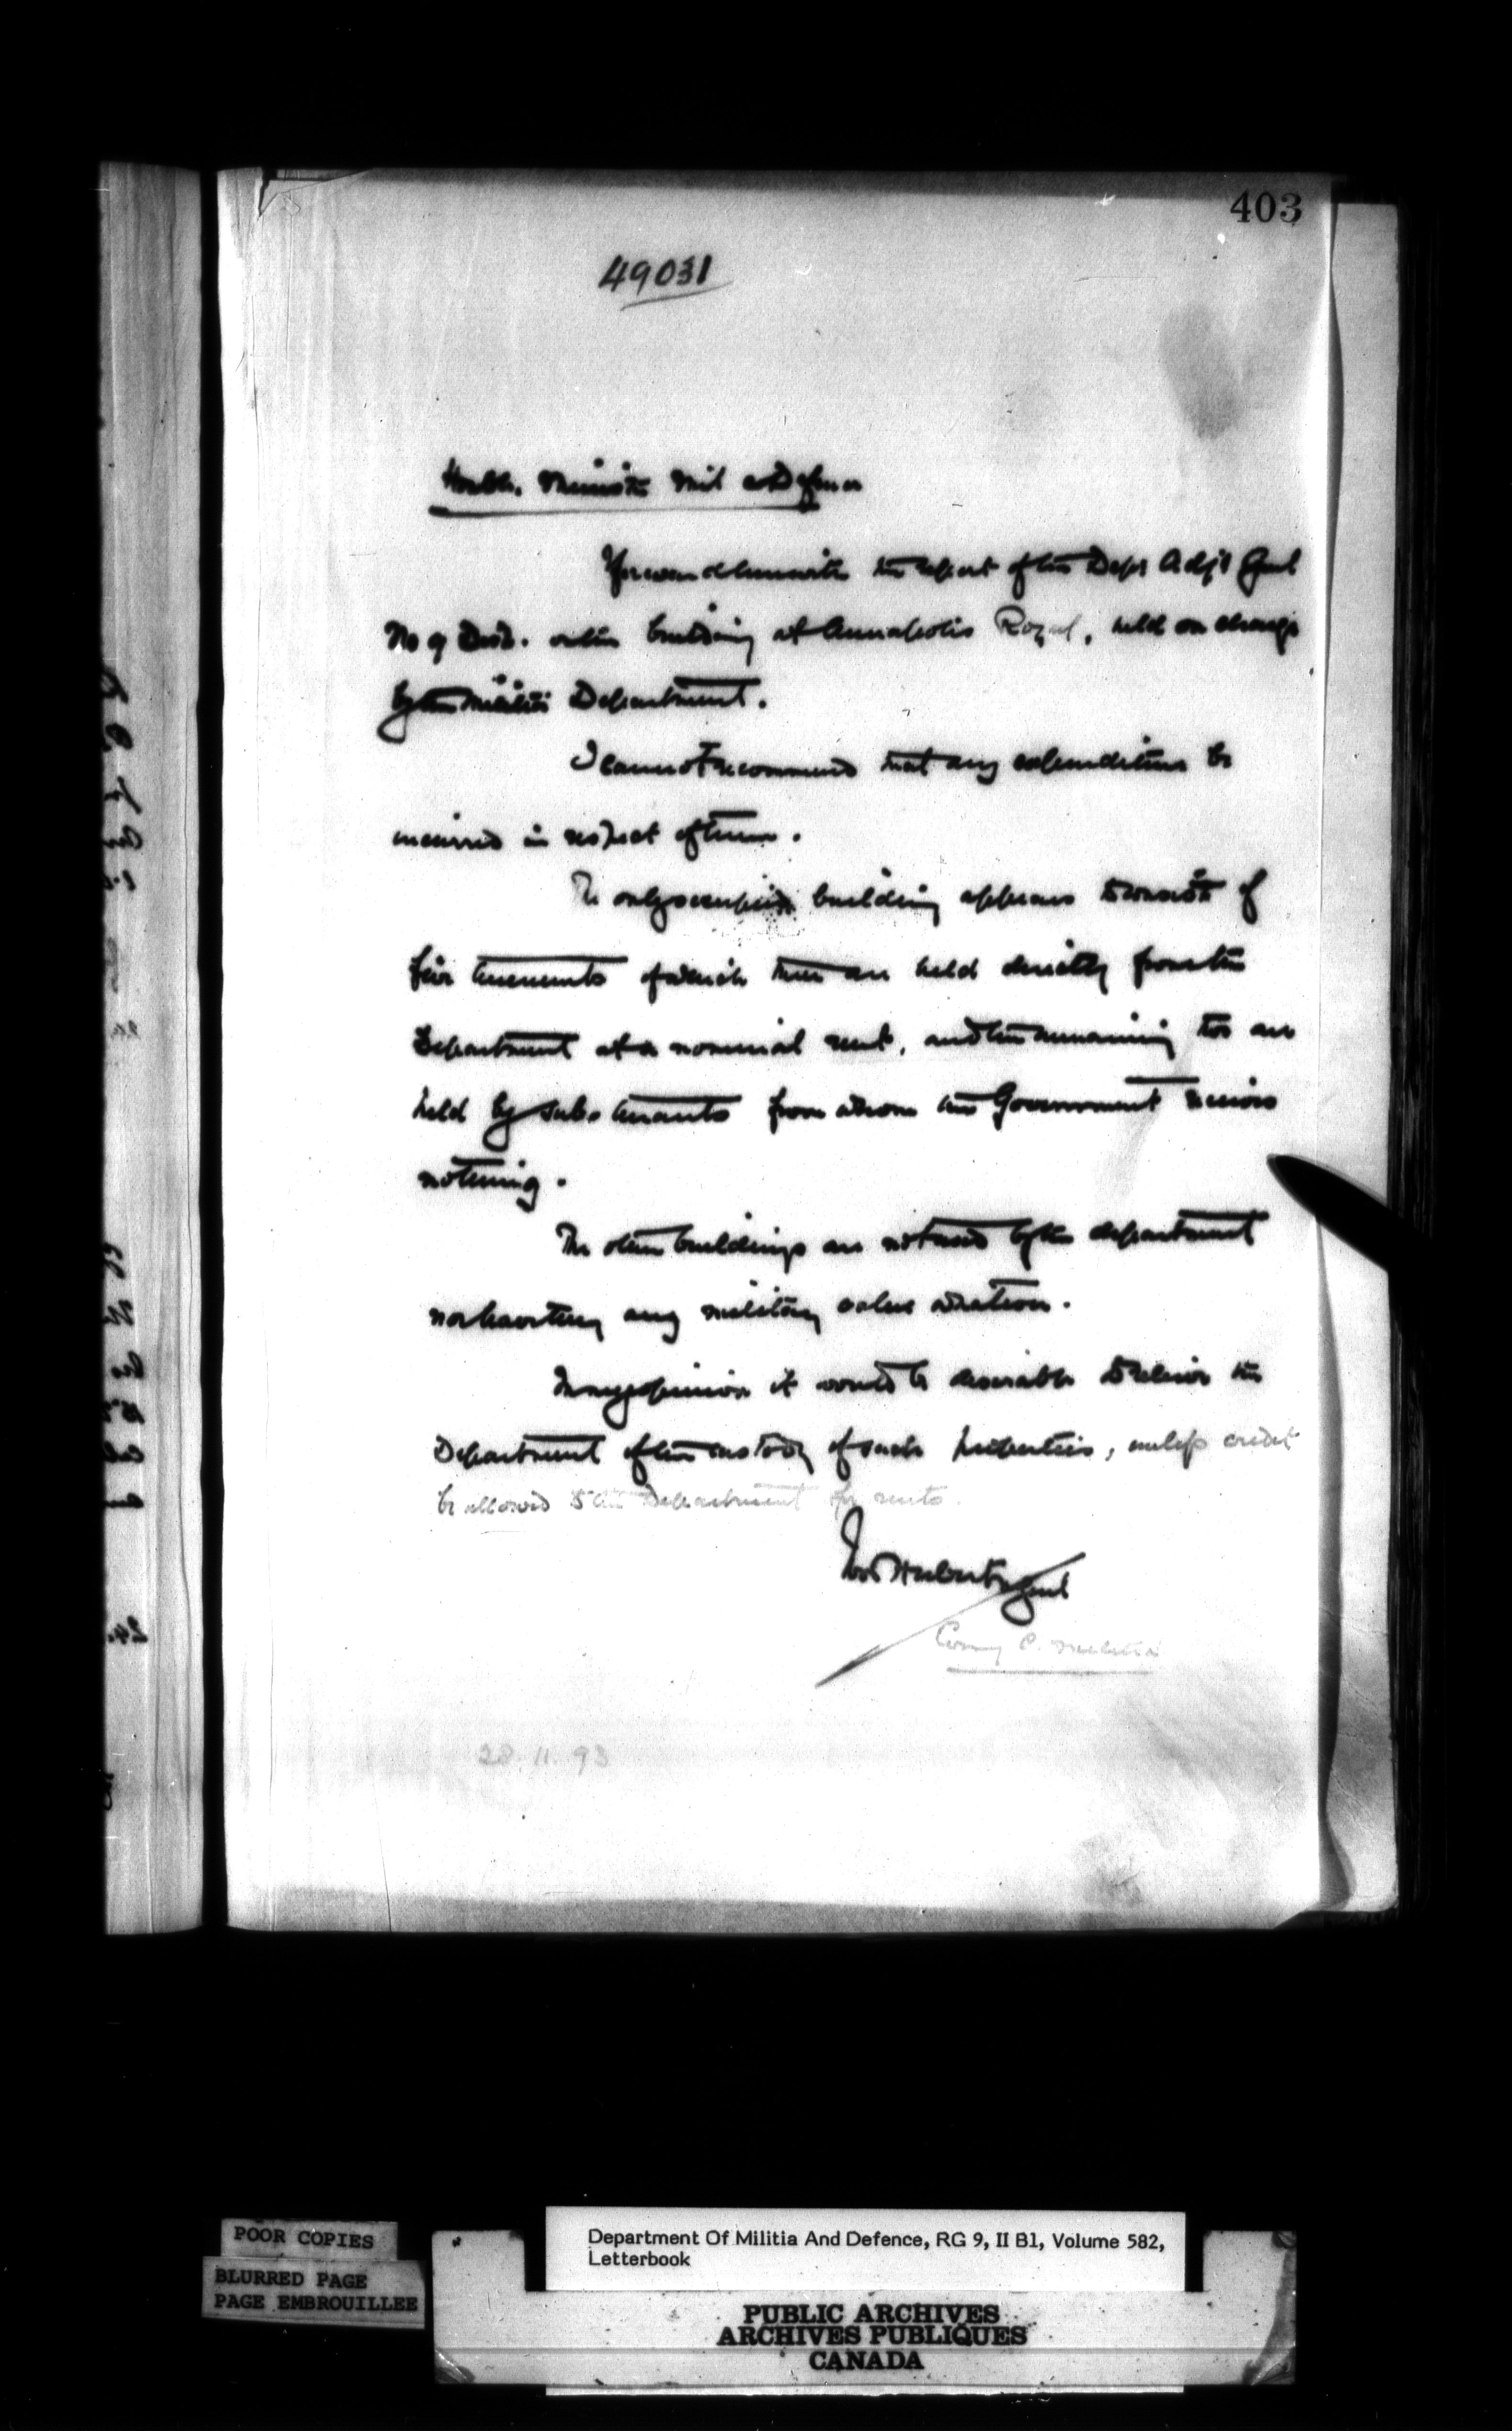 403
49031
Honble. Minister Mil and Defence
Forwarded herewith the report of the Depy Adjt Genl
No 9 Dist. on the building at Annapolis Royal, held on charge
by the Militia Department.
I cannot recommend that any expenditure be
incurred in respect of them.
The only occupied building appears to consist of
five tenements of which three are held directly from the
Department at a nominal rent, and the remaining two are
held by sub-tenants from whom the Government receives
nothing.
The other buildings are not used by the department
nor have they any military value whatever.
In my opinion it would be desirable to relieve the
Department of the custody of such properties, unless credit
be allowed to the Department for rents.
Ivor Herbert M Genl
Comg C. Militia
28.11.93
POOR COPIES
BLURRED PAGE
PAGE EMBROUILLEE
Department Of Militia And Defence, RG 9, II B1, Volume 582,
Letterbook
PUBLIC ARCHIVES
ARCHIVES PUBLIQUES
CANADA